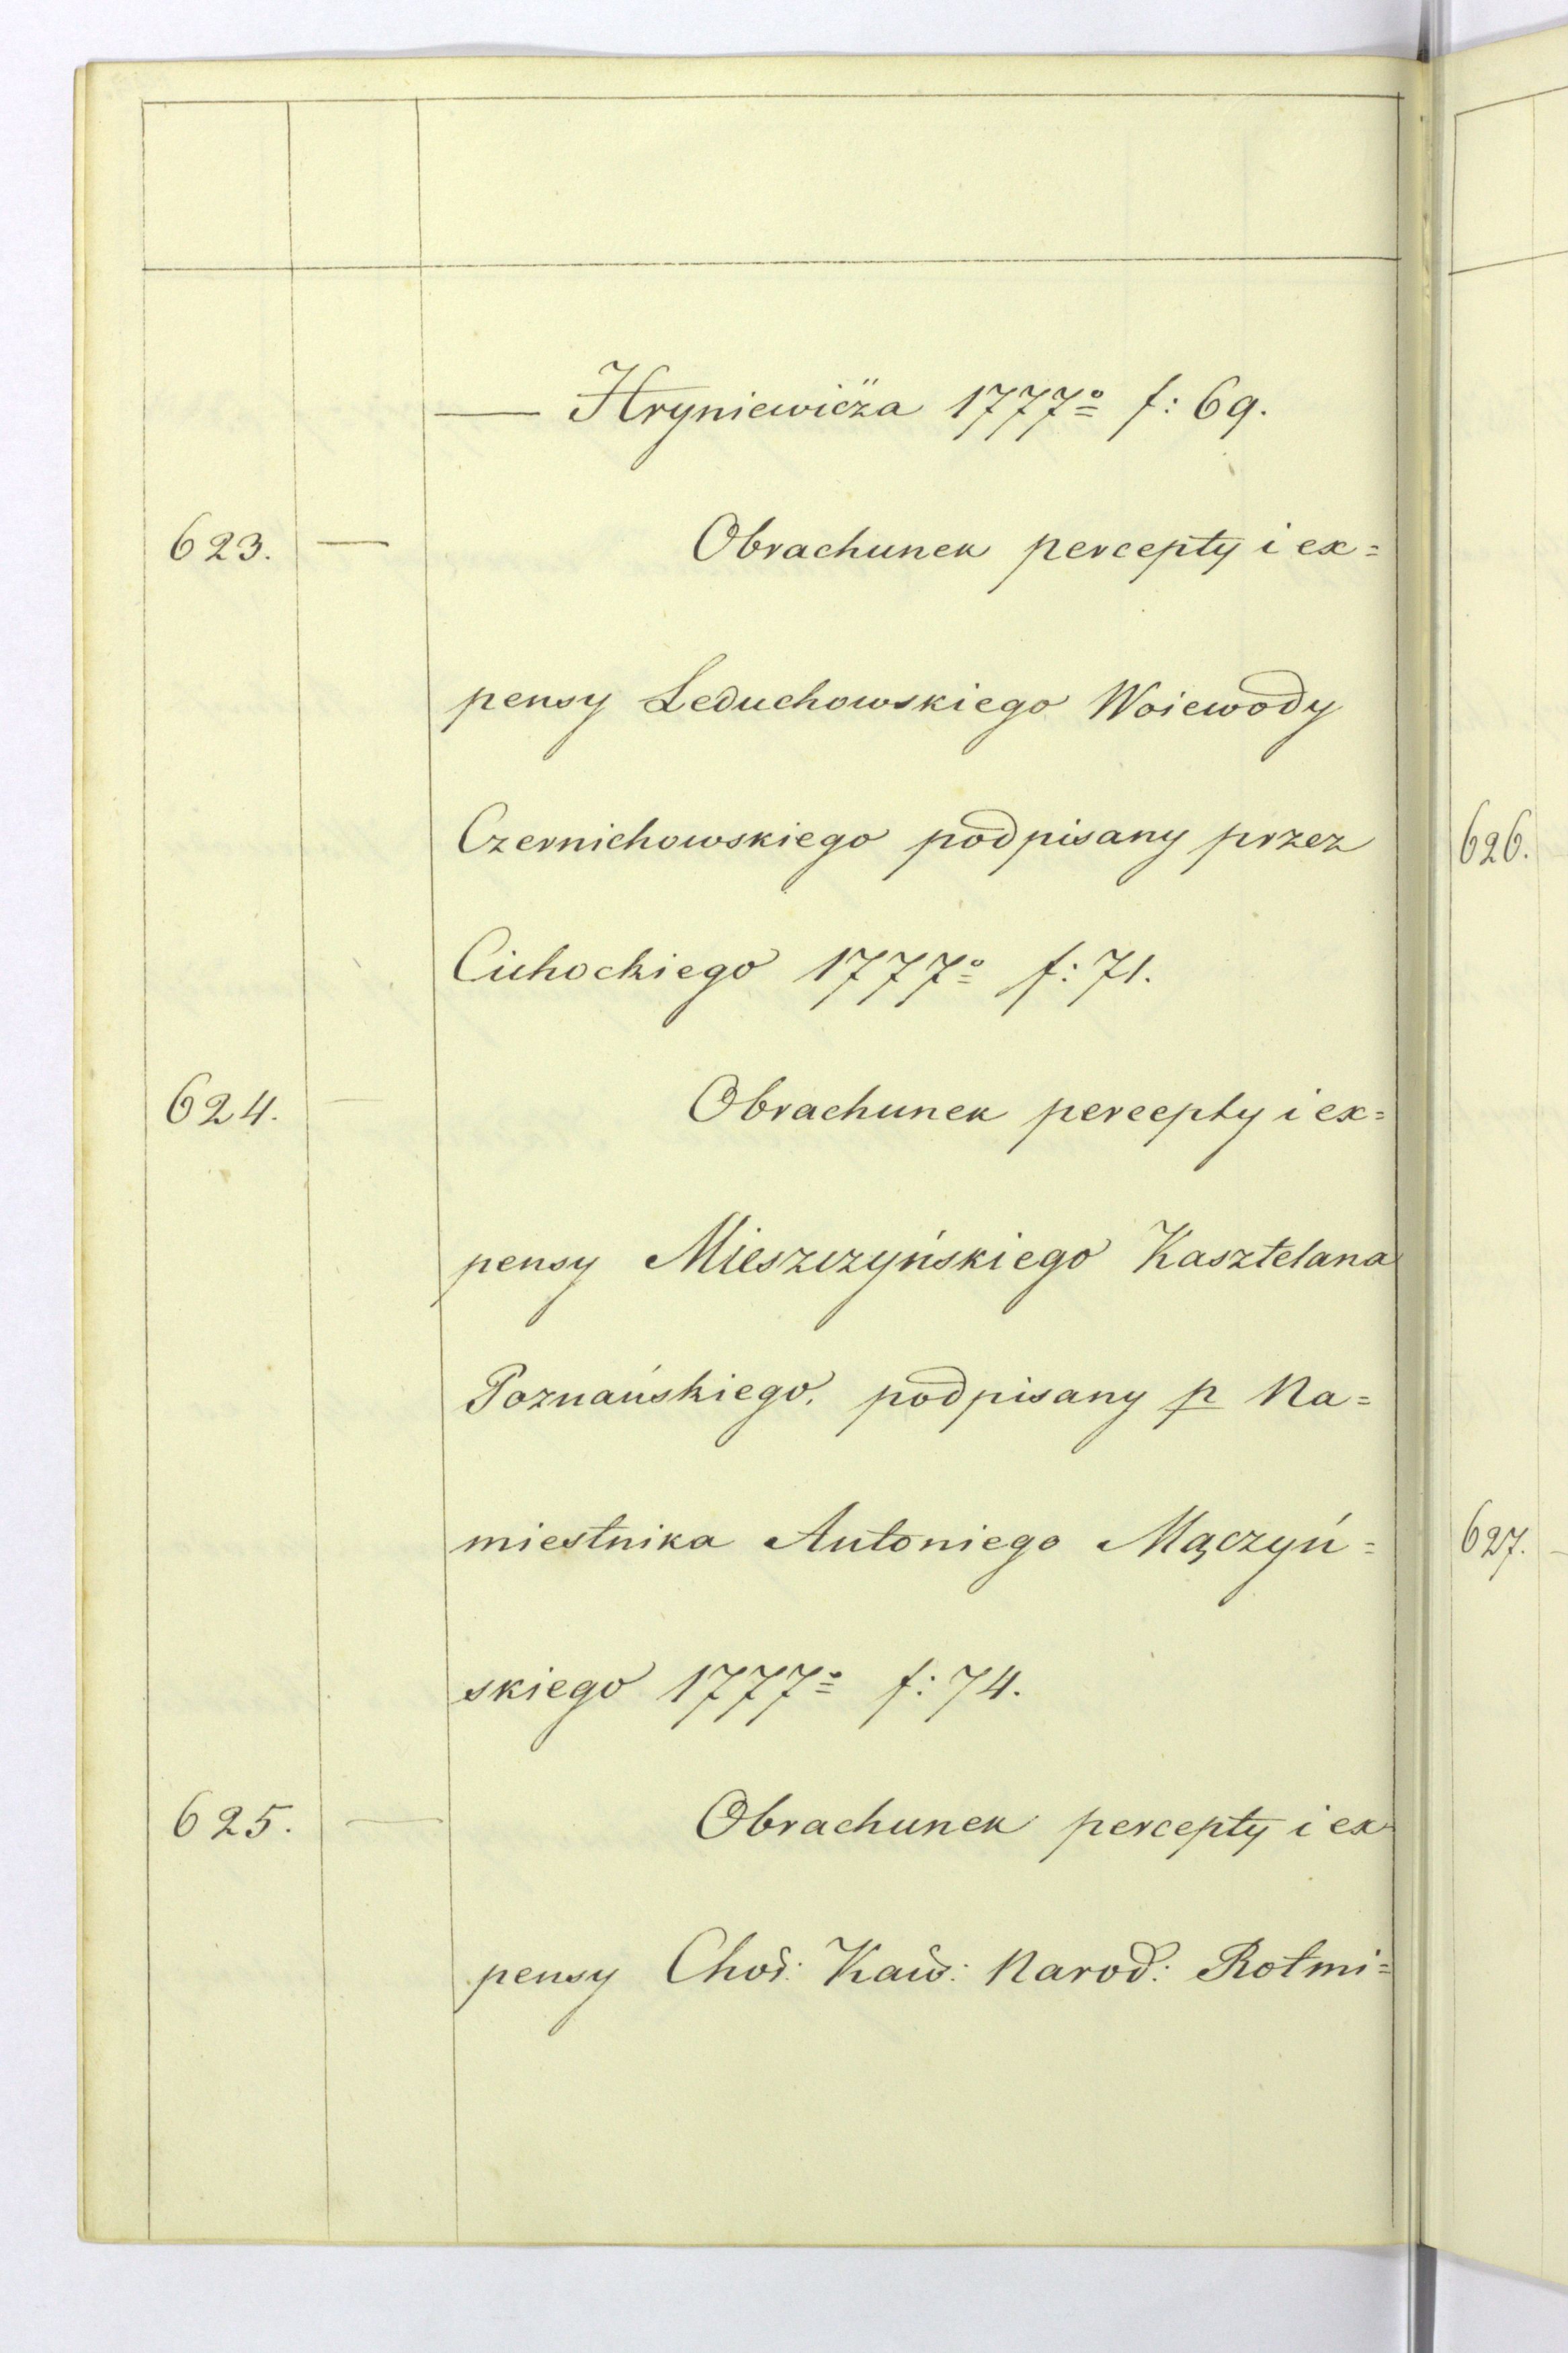 — Hryniewicza 1777º f: 69.
623. — Obrachunek percepty i ex=
pensy Leduchowskiego Woiewody
Czernichowskiego podpisany przez
Cichockiego 1777º f: 71.
624. — Obrachunek percepty i ex=
pensy Mieszczyńskiego Kasztelana
Poznańskiego. podpisany p Na=
miestnika Antoniego Mączyń=
skiego 1777º f: 74.
625. — Obrachunek percepty i ex
pensy Kaw: Narod: Rotmi=
626.
627.